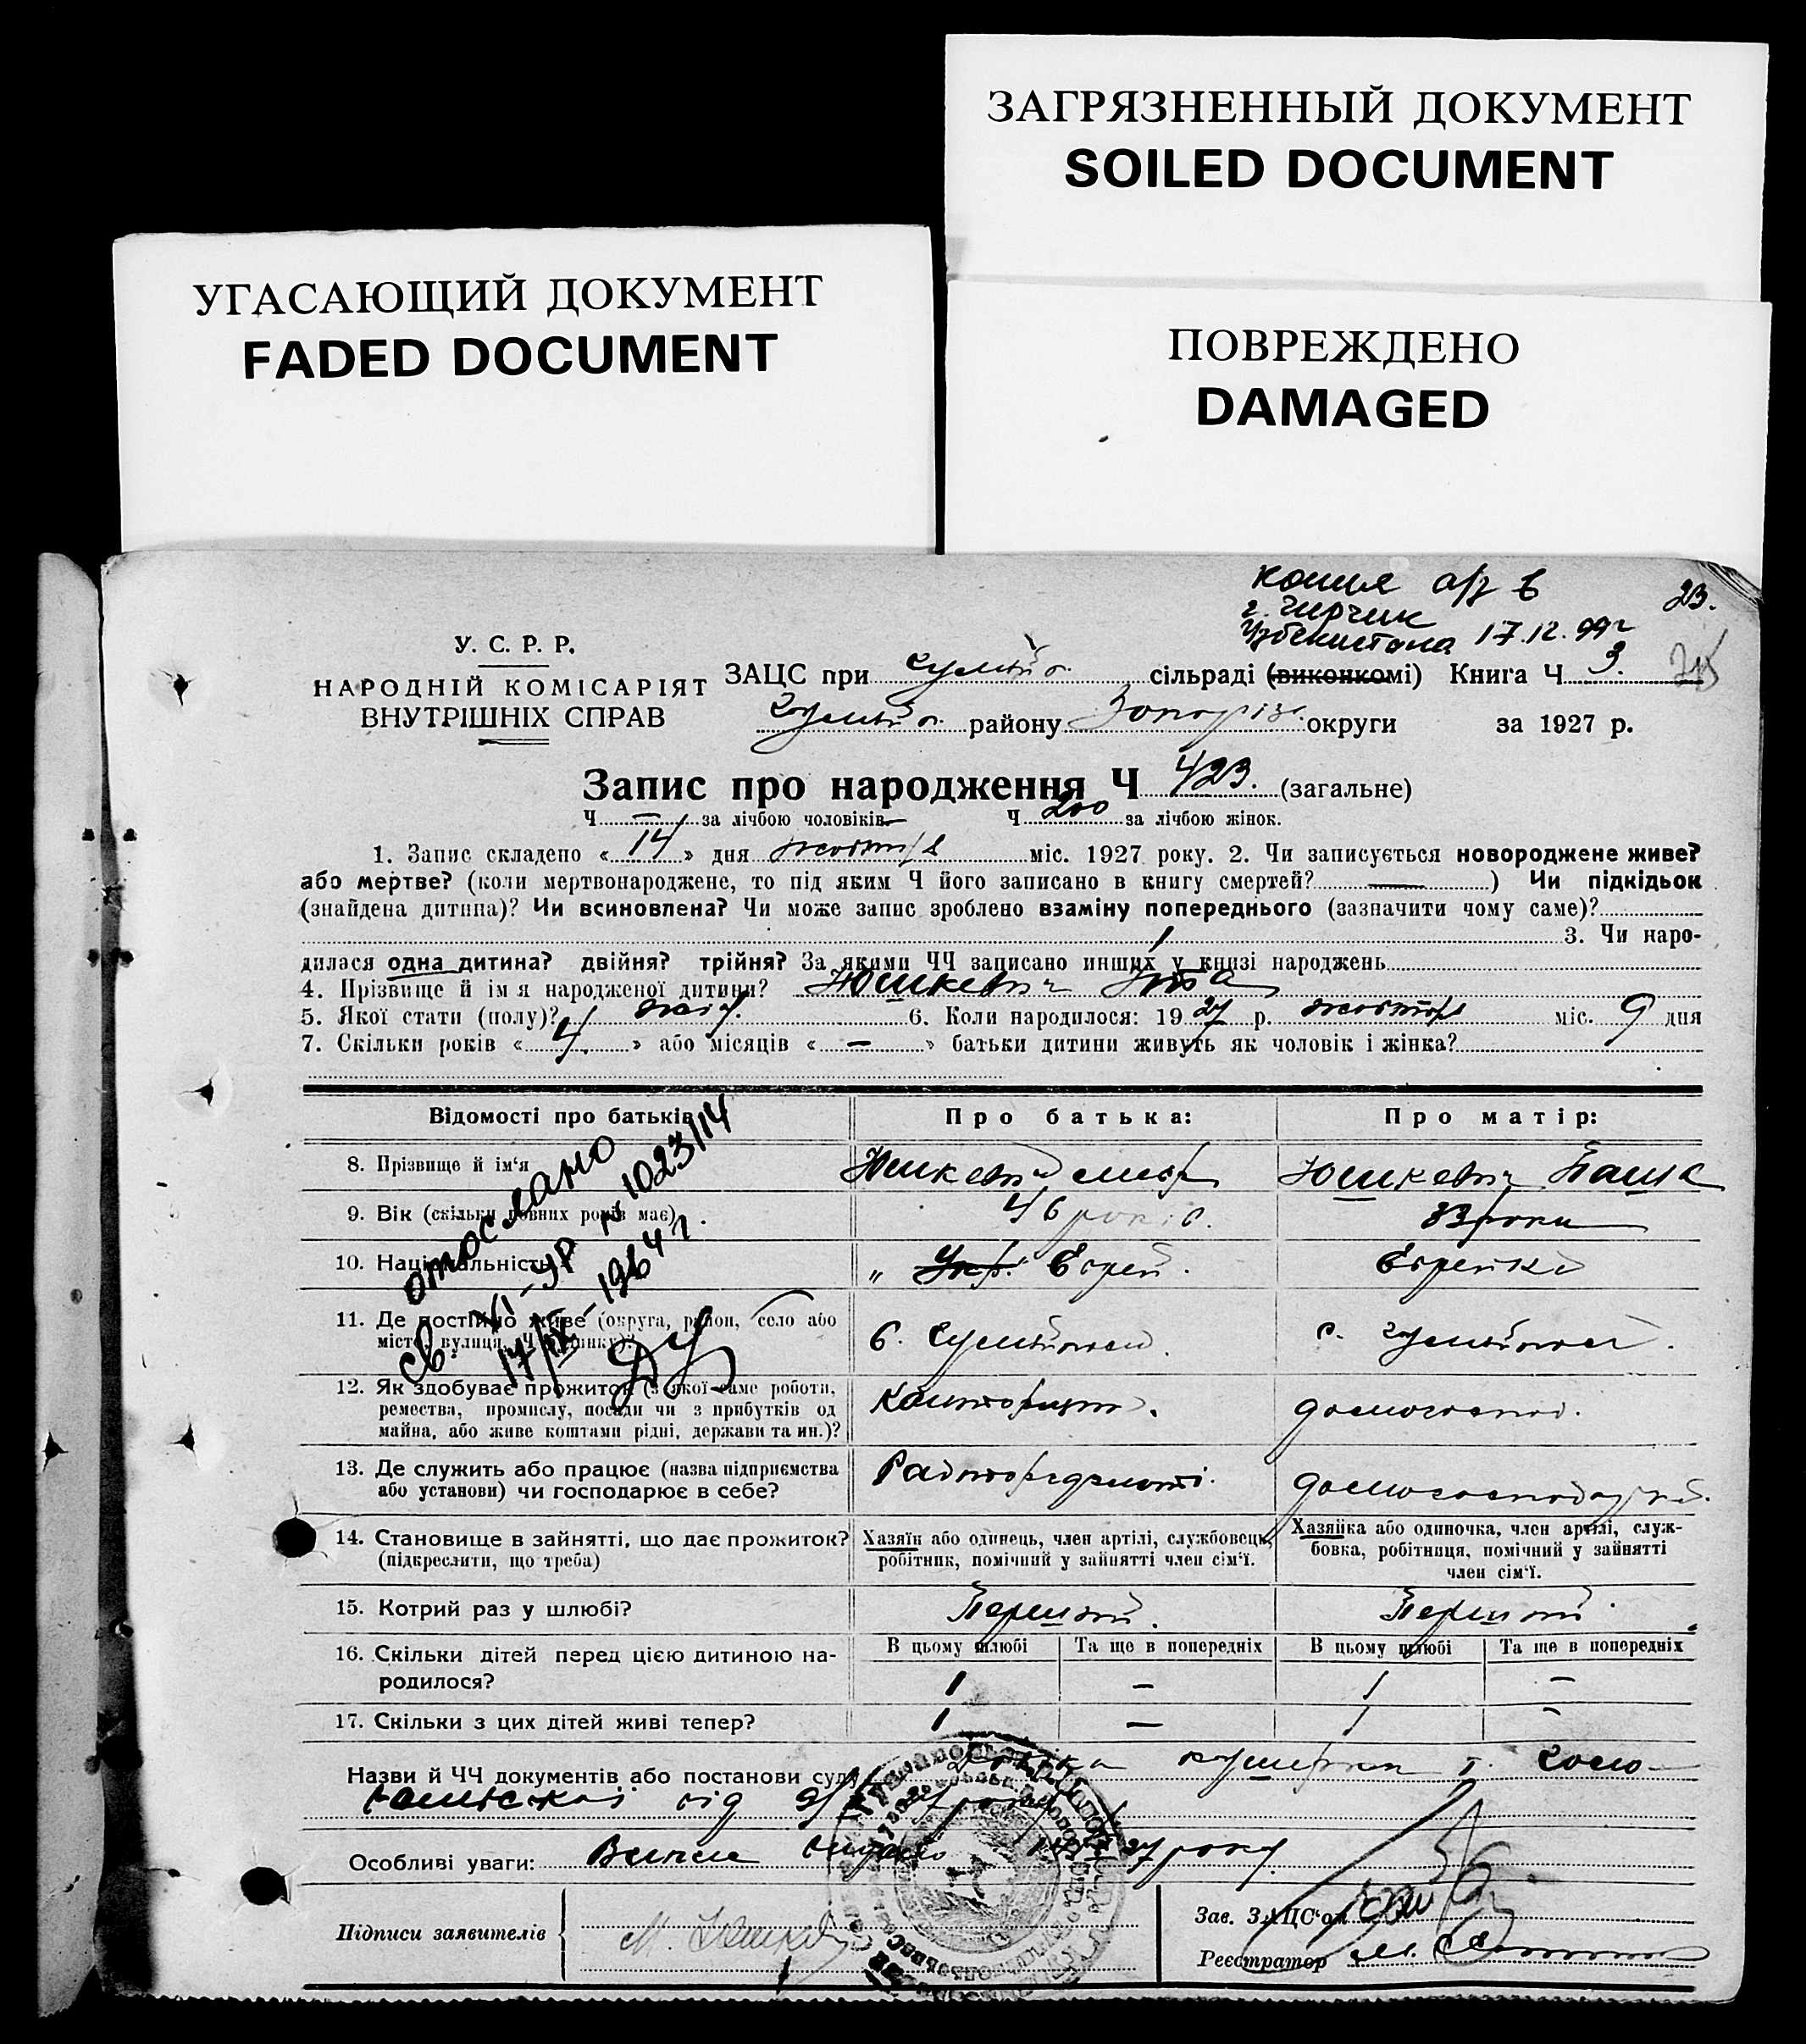 ЗАГРЯЗНЕННЫЙ ДОКУМЕНТ
SOILED DOCUMENT
УГАСАЮЩИЙ ДОКУМЕНТ
FADED DOCUMENT
ПОВРЕЖДЕНО
DAMAGED
копия а/з в
23.
г. Чирчик
Узбекистана 17.12.99г
У. С. Р. Р.
НАРОДНІЙ КОМІСАРІЯТ
ВНУТРІШНІХ СПРАВ
ЗАЦС при сільраді (виконкомі) Книга Ч 3.
району Запоріз. округи за 1927 р.
Запис про народження Ч 423. (загальне)
Ч — за лічбою чоловіків Ч 200 за лічбою жінок.
1. Запис складено « 14 » дня жовтня міс. 1927 року. 2. Чи записується новороджене живе?
або мертве? (коли мертвонароджене, то під яким Ч його записано в книгу смертей? — ) Чи підкідьок
(знайдена дитина)? Чи всиновлена? Чи може запис зроблено взаміну попереднього (зазначити чому саме)?
3. Чи наро-
дилася одна дитина? двійня? трійня? За якими ЧЧ записано инших у книзі народжень
4. Прізвище й ім'я народженої дитини? Юшкевич
5. Якої стати (полу)? жін. 6. Коли народилося: 19 27 р. жовтня міс. 9 дня
7. Скільки років « 4 » або місяців « — » батьки дитини живуть як чоловік і жінка?
Відомості про батьків
Про батька:
Про матір:
8. Прізвище й ім'я
Юшкевич
Юшкевич
9. Вік (скільки повних років має)
46 років.
33 роки
10. Національність
" Укр. Еврей.
Еврейка
11. Де постійно живе (округа, район, село або
місто, вулиця, Ч будинку)?
12. Як здобуває прожиток (з якої саме роботи,
ремества, промислу, посади чи з прибутків од
майна, або живе коштами рідні, держави та ин.)?
домогоспод.
13. Де служить або працює (назва підприємства
або установи) чи господарює в себе?
14. Становище в зайнятті, що дає прожиток?
(підкреслити, що треба)
Хазяїн або одинець, член артілі, службовець,
робітник, помічний у зайнятті член сім'ї.
Хазяйка або одиночка, член артілі, служ-
бовка, робітниця, помічний у зайнятті
член сім'ї.
15. Котрий раз у шлюбі?
Перший.
Перший.
16. Скільки дітей перед цією дитиною на-
родилося?
В цьому шлюбі
Та ще в попередніх
В цьому шлюбі
Та ще в попередніх
1 — 1 —
17. Скільки з цих дітей живі тепер?
1 — 1 —
отослано
св. VI-УР № 1023114
17/IX-1964 г.
Назви й ЧЧ документів або постанови суду
від
Особливі уваги: Виписи видано 27 року.
Підписи заявителів
М. Юшкев
Зав. ЗАЦС'ом
Реєстратор